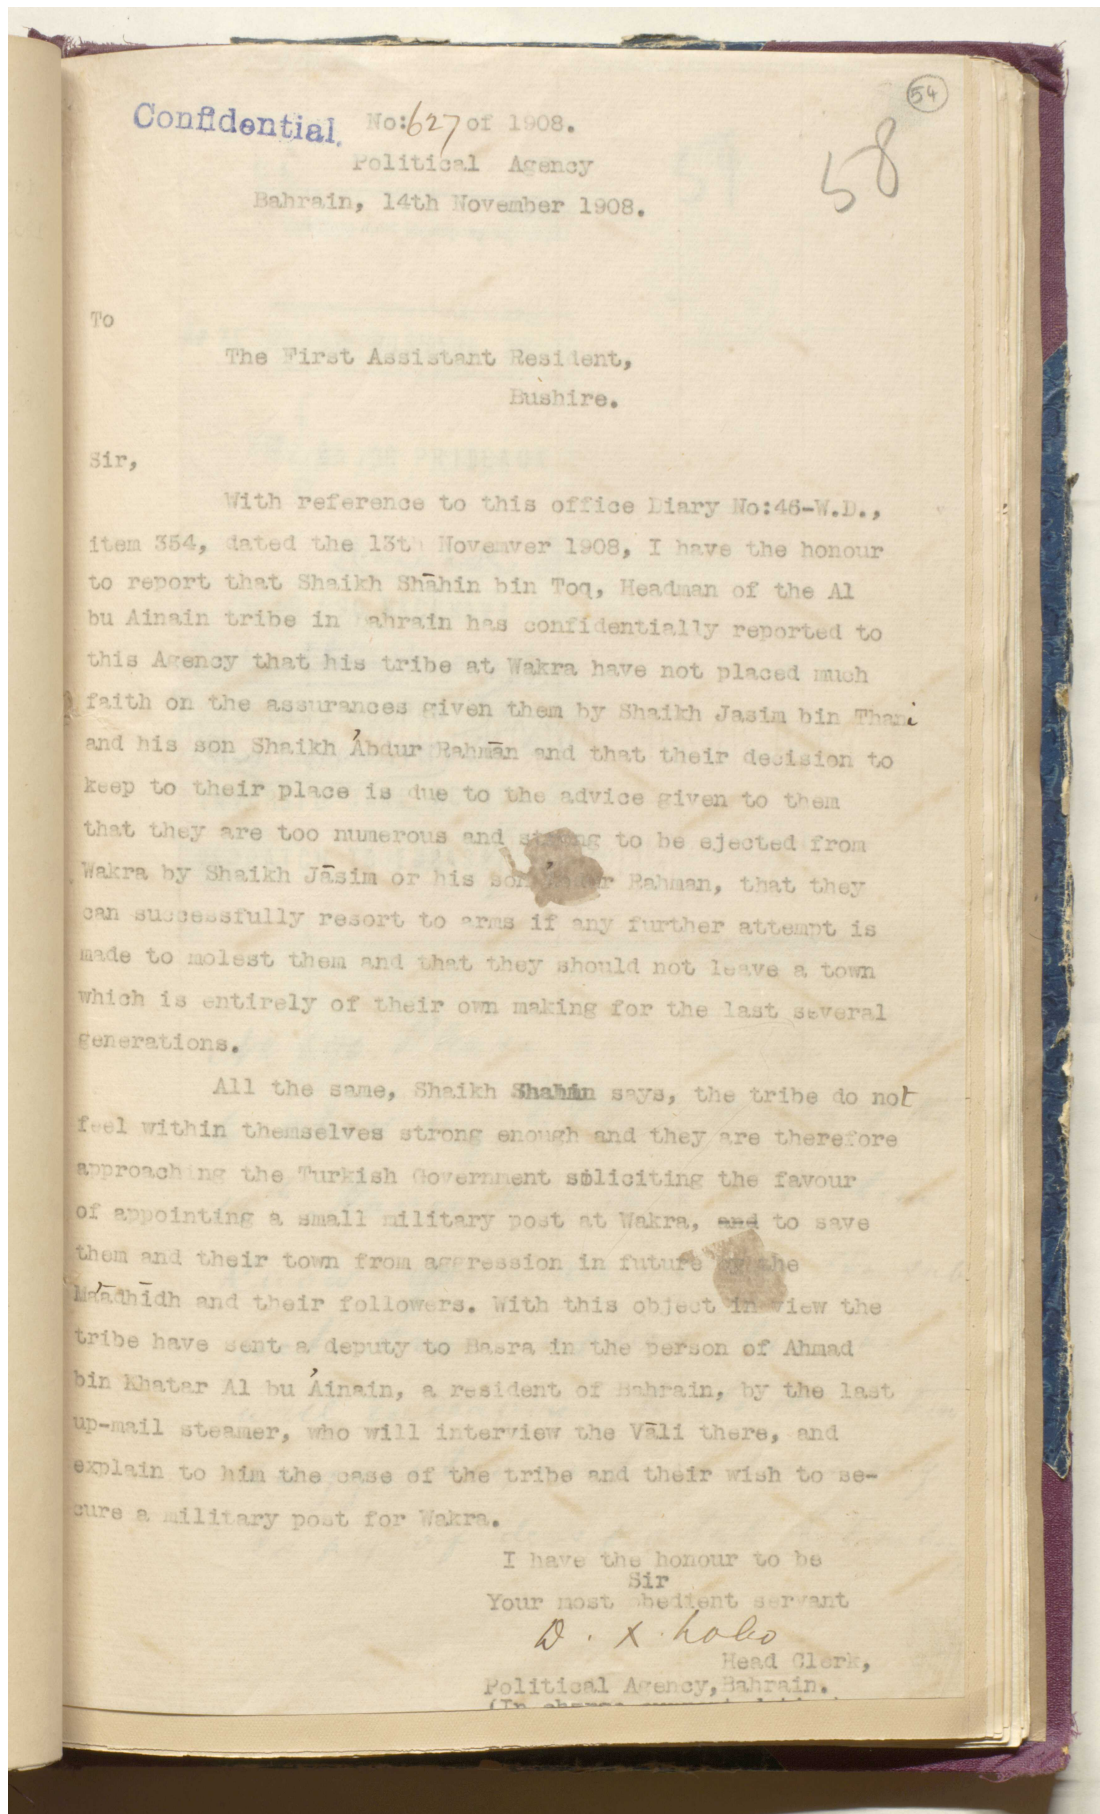 54
58
Confidential.
No:627 of 1908.
Political Agency
Bahrain, 14th November 1908.
To
The First Assistant Resident,
Bushire.
Sir,
With reference to this office Diary No:46-W.D.,
item 354, dated the 13th Novemver 1908, I have the honour
to report that Shaikh Shāhin bin Toq, Headman of the Al
bu Ainain tribe in Bahrain has confidentially reported to
this Agency that his tribe at Wakra have not placed much
faith on the assurances given them by Shaikh Jasim bin Thani
and his son Shaikh 'Abdur Rahmān and that their decision to
keep to their place is due to the advice given to them
that they are too numerous and strong to be ejected from
Wakra by Shaikh Jāsim or his son Rahman, that they
can successfully resort to arms if any further attempt is
made to molest them and that they should not leave a town
which is entirely of their own making for the last several
generations.
All the same, Shaikh Shahin says, the tribe do not
feel within themselves strong enough and they are therefore
approaching the Turkish Government soliciting the favour
of appointing a small military post at Wakra, and to save
them and their town from aggression in future by the
Ma'ādhīdh and their followers. With this object in view the
tribe have sent a deputy to Basra in the person of Ahmad
bin Khatar Al bu 'Ainain, a resident of Bahrain, by the last
up-mail steamer, who will interview the Vāli there, and
explain to him the case of the tribe and their wish to se-
cure a military post for Wakra.
I have the honour to be
Sir
Your most obedient servant
D. X. Lobo
Head Clerk,
Political Agency, Bahrain.
(In charge current duties